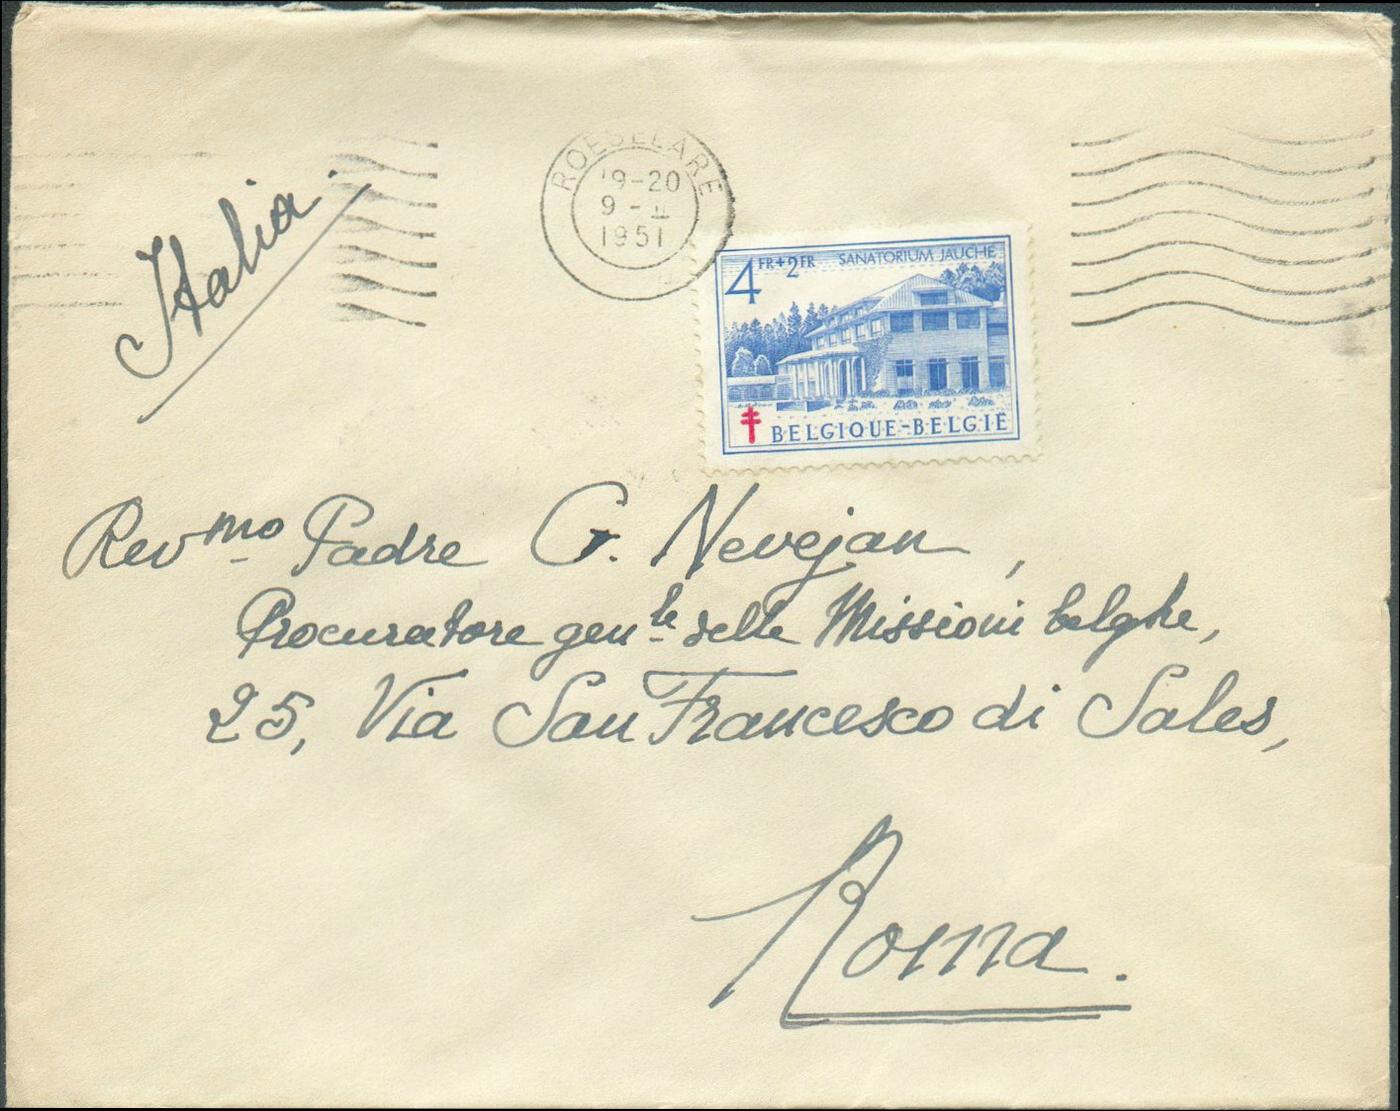 Italia.
ROESELARE
19-20
9 - II
1951
4 FR + 2 FR SANATORIUM JAUCHE
BELGIQUE-BELGIË
Rev.mo Padre G. Nevejan,
Procuratore gen.le delle Missioni belghe,
25, Via San Francesco di Sales,
Roma.